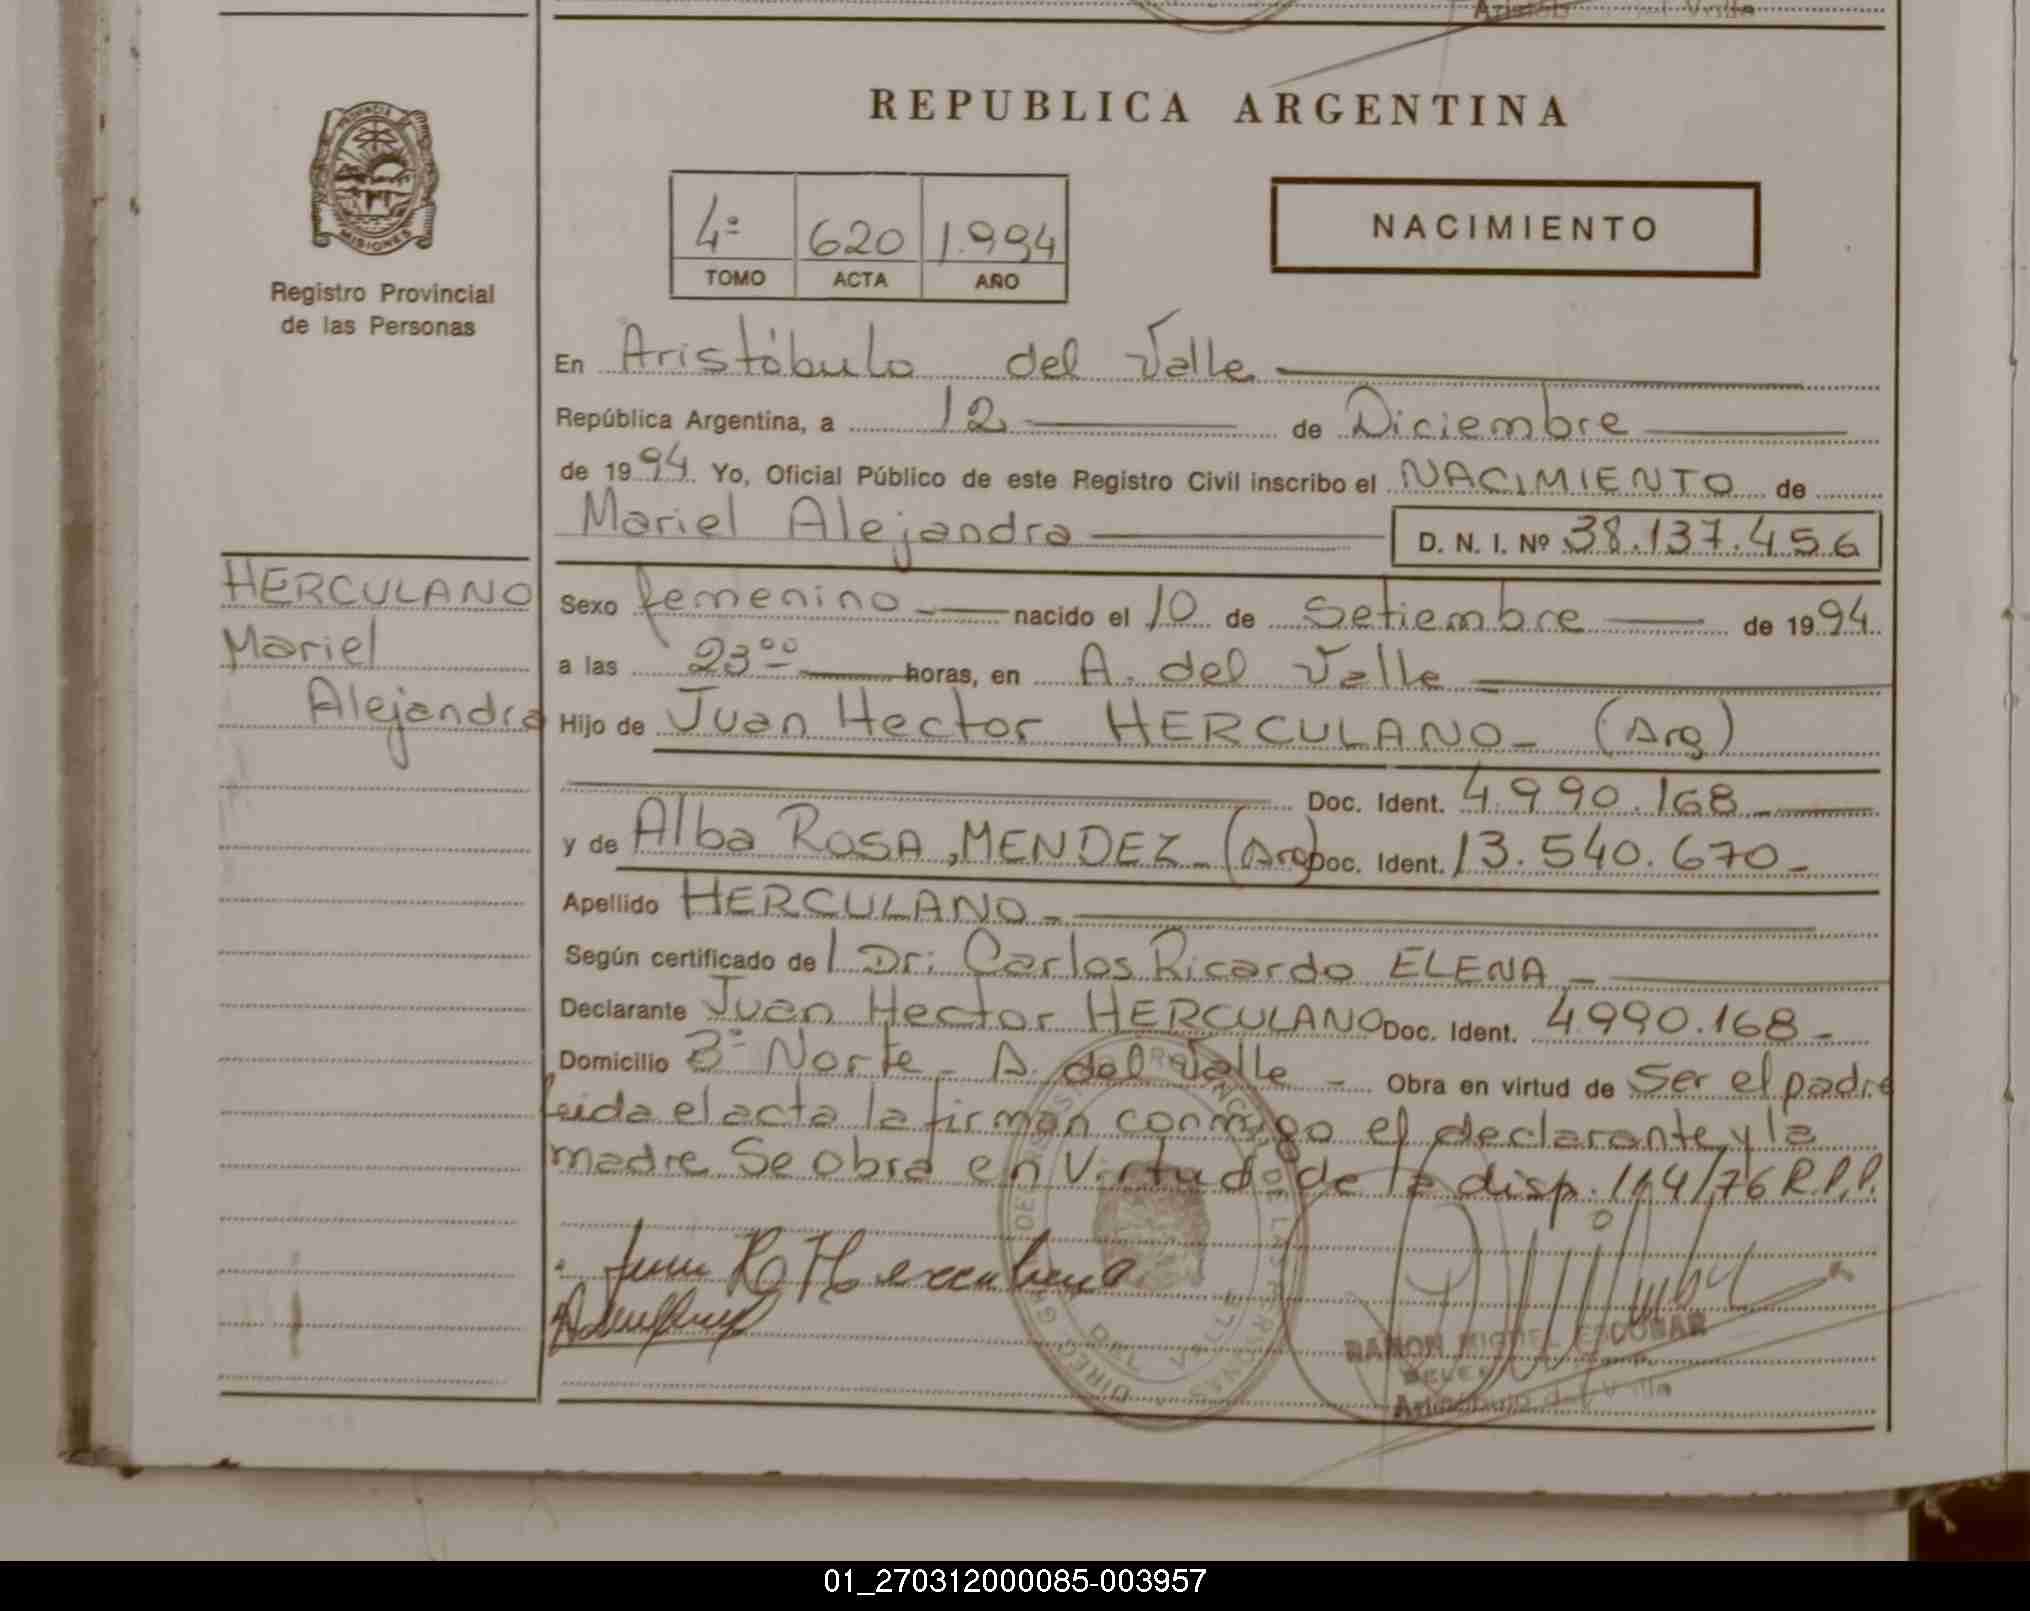 REPUBLICA ARGENTINA
PROVINCIA
MISIONES
Registro Provincial
de las Personas
4º 620 1.994
TOMO ACTA AÑO
NACIMIENTO
En Aristóbulo del Valle
República Argentina, a 12 de Diciembre
de 1994. Yo, Oficial Público de este Registro Civil inscribo el NACIMIENTO de
Mariel Alejandra D. N. I. Nº 38.137.456
HERCULANO
Mariel
Alejandra
Sexo femenino nacido el 10 de Setiembre de 1994.
a las 23⁰⁰ horas, en A. del Valle
Hijo de Juan Hector HERCULANO_ (Arg)
Doc. Ident. 4.990.168
y de Alba ROSA, MENDEZ_ (Arg) Doc. Ident. 13.540.670_
Apellido HERCULANO_
Según certificado de l Dr: Carlos Ricardo ELENA_
Declarante Juan Hector HERCULANO Doc. Ident. 4.990.168_
Domicilio Bº Norte_ A. del Valle_ Obra en virtud de Ser el padre
leida el acta la firman conmigo el declarante y la
madre Se obra en Virtud de la disp. 114/76 R.P.P.
RAMON MIGUEL ESCOBAR
Aristóbulo del Valle
01_270312000085-003957